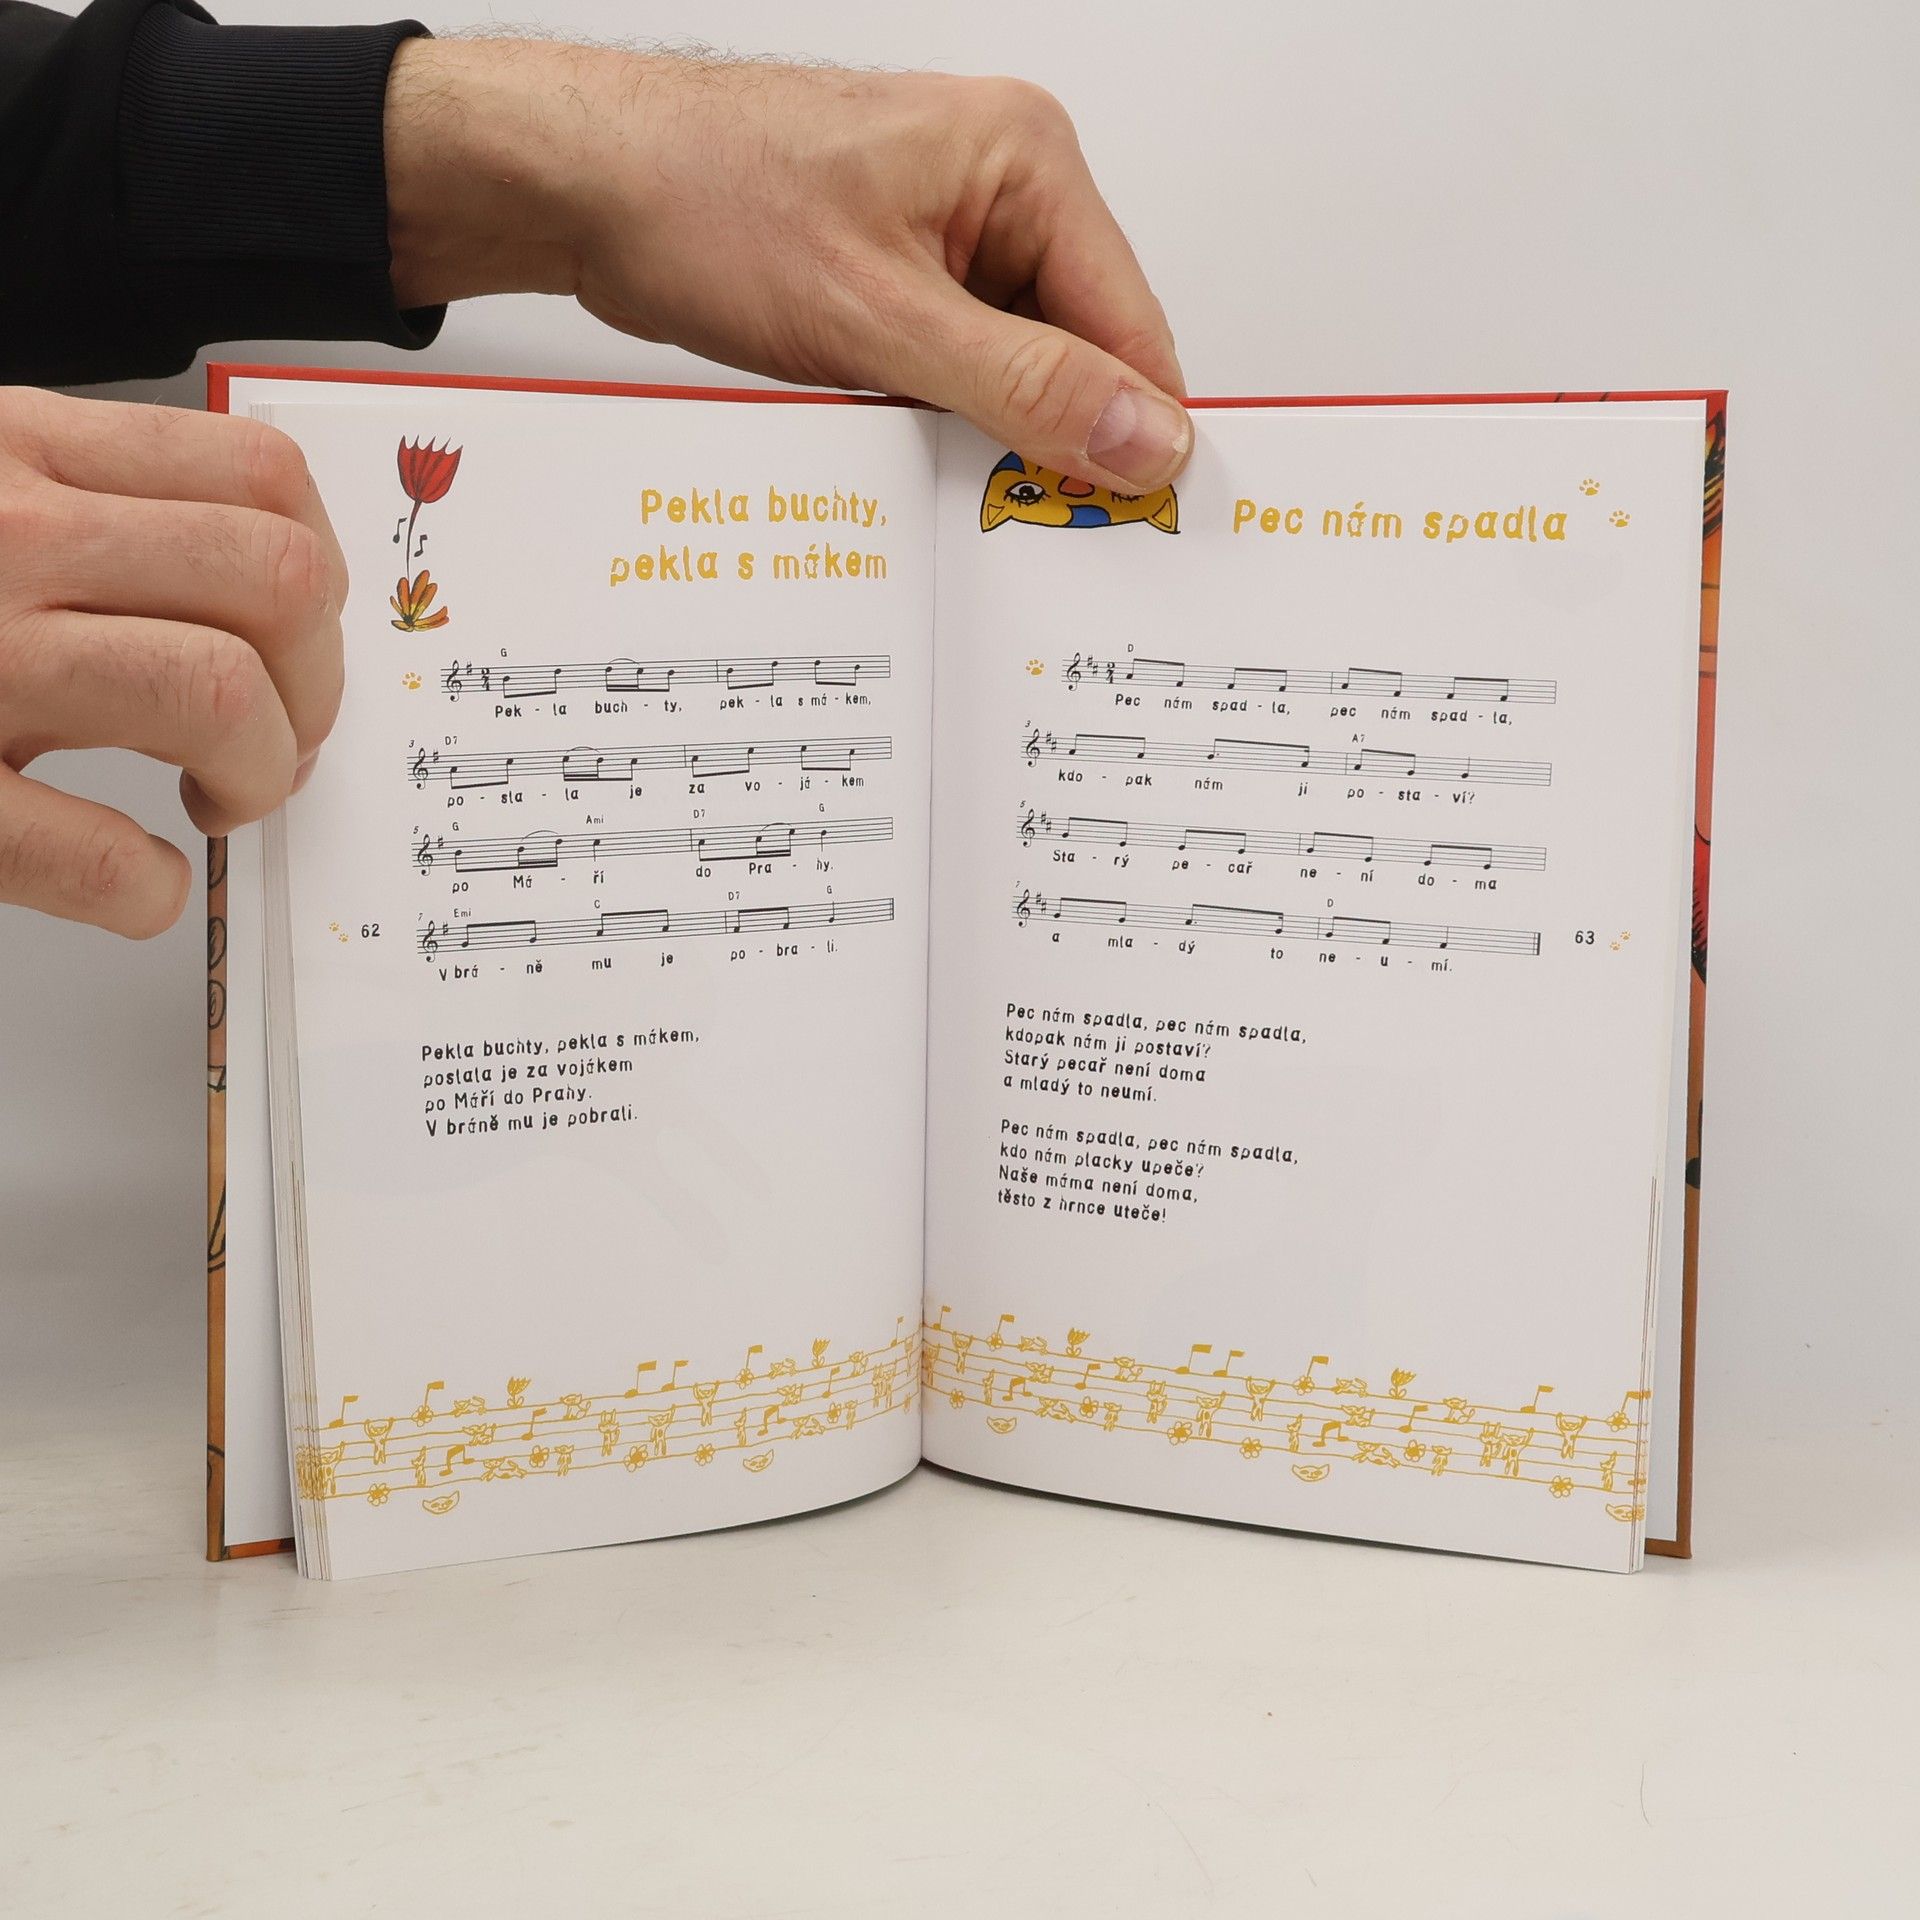 Pekla buchty,
pekla s mákem
G
2
4
Pek - la buch - ty, pek - la s má - kem,
3 D7
po - sla - la je za vo - já - kem
5 G Ami D7 G
po Má - ří do Pra - hy.
7 Emi C D7 G
V brá - ně mu je po - bra - li.
62
Pekla buchty, pekla s mákem,
poslala je za vojákem
po Máří do Prahy.
V bráně mu je pobrali.
Pec nám spadla
D
2
4
Pec nám spad - la, pec nám spad - la,
3 A7
kdo - pak nám ji po - sta - ví?
5
Sta - rý pe - cař ne - ní do - ma
7 D
a mla - dý to ne - u - mí.
63
Pec nám spadla, pec nám spadla,
kdopak nám ji postaví?
Starý pecař není doma
a mladý to neumí.
Pec nám spadla, pec nám spadla,
kdo nám placky upeče?
Naše máma není doma,
těsto z hrnce uteče!